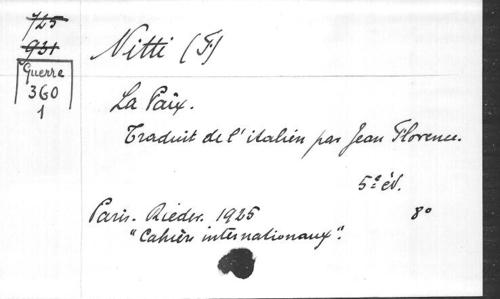 725
931
Guerre
360
1
Nitti (F)
La Paix.
Traduit de l'italien par Jean Florence.
5e éd.
Paris. Rieder. 1925 8°
"Cahiers internationaux".